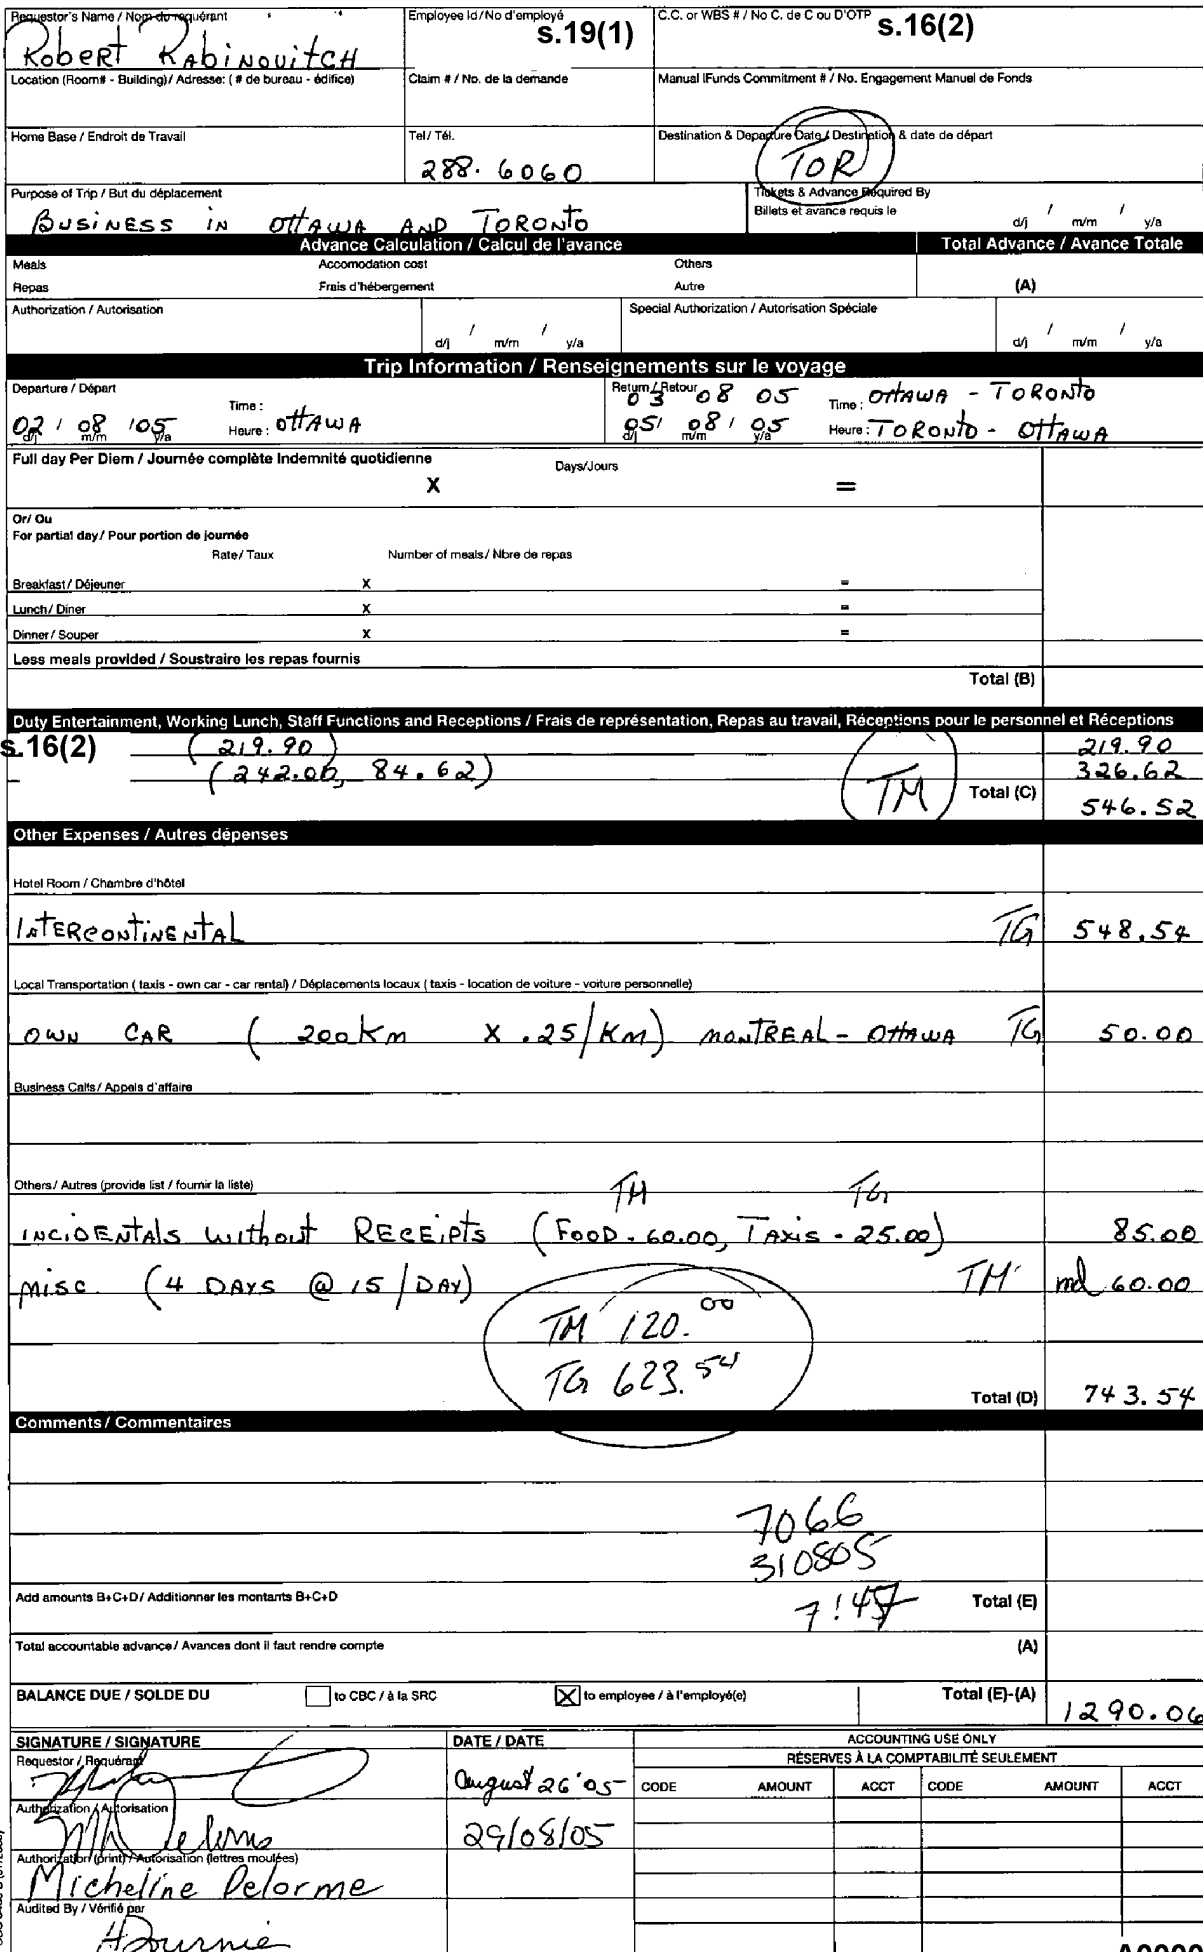 Requestor's Name / Nom du requérant
Robert Rabinovitch
Employee Id/No d'employé
s.19(1)
C.C. or WBS # / No C. de C ou D'OTP
s.16(2)
Location (Room# - Building)/ Adresse: ( # de bureau - édifice)
Claim # / No. de la demande
Manual IFunds Commitment # / No. Engagement Manuel de Fonds
Home Base / Endroit de Travail
Tel / Tél.
288. 6060
Destination & Departure Date / Destination & date de départ
TOR
Purpose of Trip / But du déplacement
BUSINESS IN OTTAWA AND TORONTO
Tickets & Advance Required By
Billets et avance requis le
d/j / m/m / y/a
Advance Calculation / Calcul de l'avance
Total Advance / Avance Totale
Meals
Repas
Accomodation cost
Frais d'hébergement
Others
Autre
(A)
Authorization / Autorisation
d/j / m/m / y/a
Special Authorization / Autorisation Spéciale
d/j / m/m / y/a
Trip Information / Renseignements sur le voyage
Departure / Départ
02 / 08 / 05
d/j m/m y/a
Time :
Heure : OTTAWA
Return / Retour
03 08 05
05/ 08/ 05
d/j m/m y/a
Time : OTTAWA - TORONTO
Heure : TORONTO - OTTAWA
Full day Per Diem / Journée complète Indemnité quotidienne
Days/Jours
X =
Or/ Ou
For partial day / Pour portion de journée
Rate / Taux Number of meals / Nbre de repas
Breakfast / Déjeuner X =
Lunch / Diner X =
Dinner / Souper X =
Less meals provided / Soustraire les repas fournis
Total (B)
Duty Entertainment, Working Lunch, Staff Functions and Receptions / Frais de représentation, Repas au travail, Réceptions pour le personnel et Réceptions
s.16(2) (219.90) 219.90
(242.00, 84.62) 326.62
TM Total (C) 546.52
Other Expenses / Autres dépenses
Hotel Room / Chambre d'hôtel
INTERCONTINENTAL TG 548.54
Local Transportation ( taxis - own car - car rental) / Déplacements locaux ( taxis - location de voiture - voiture personnelle)
OWN CAR ( 200 Km X .25/Km) MONTREAL - OTTAWA TG 50.00
Business Calls / Appels d'affaire
Others / Autres (provide list / fournir la liste)
TM TG
INCIDENTALS without RECEIPTS (FOOD - 60.00, TAXIS - 25.00) 85.00
MISC. (4 DAYS @ 15 / DAY) TM md 60.00
TM 120.00
TG 623.54
Total (D) 743.54
Comments / Commentaires
7066
310805
Add amounts B+C+D / Additionner les montants B+C+D
7!47
Total (E)
Total accountable advance / Avances dont il faut rendre compte
(A)
BALANCE DUE / SOLDE DU
to CBC / à la SRC
X to employee / à l'employé(e)
Total (E)-(A)
1290.06
SIGNATURE / SIGNATURE
DATE / DATE
ACCOUNTING USE ONLY
RÉSERVES À LA COMPTABILITÉ SEULEMENT
Requestor / Requérant
August 26 '05
CODE AMOUNT ACCT CODE AMOUNT ACCT
Authorization / Autorisation
M Delorme
29/08/05
Authorization (print) / Autorisation (lettres moulées)
Micheline Delorme
Audited By / Vérifié par